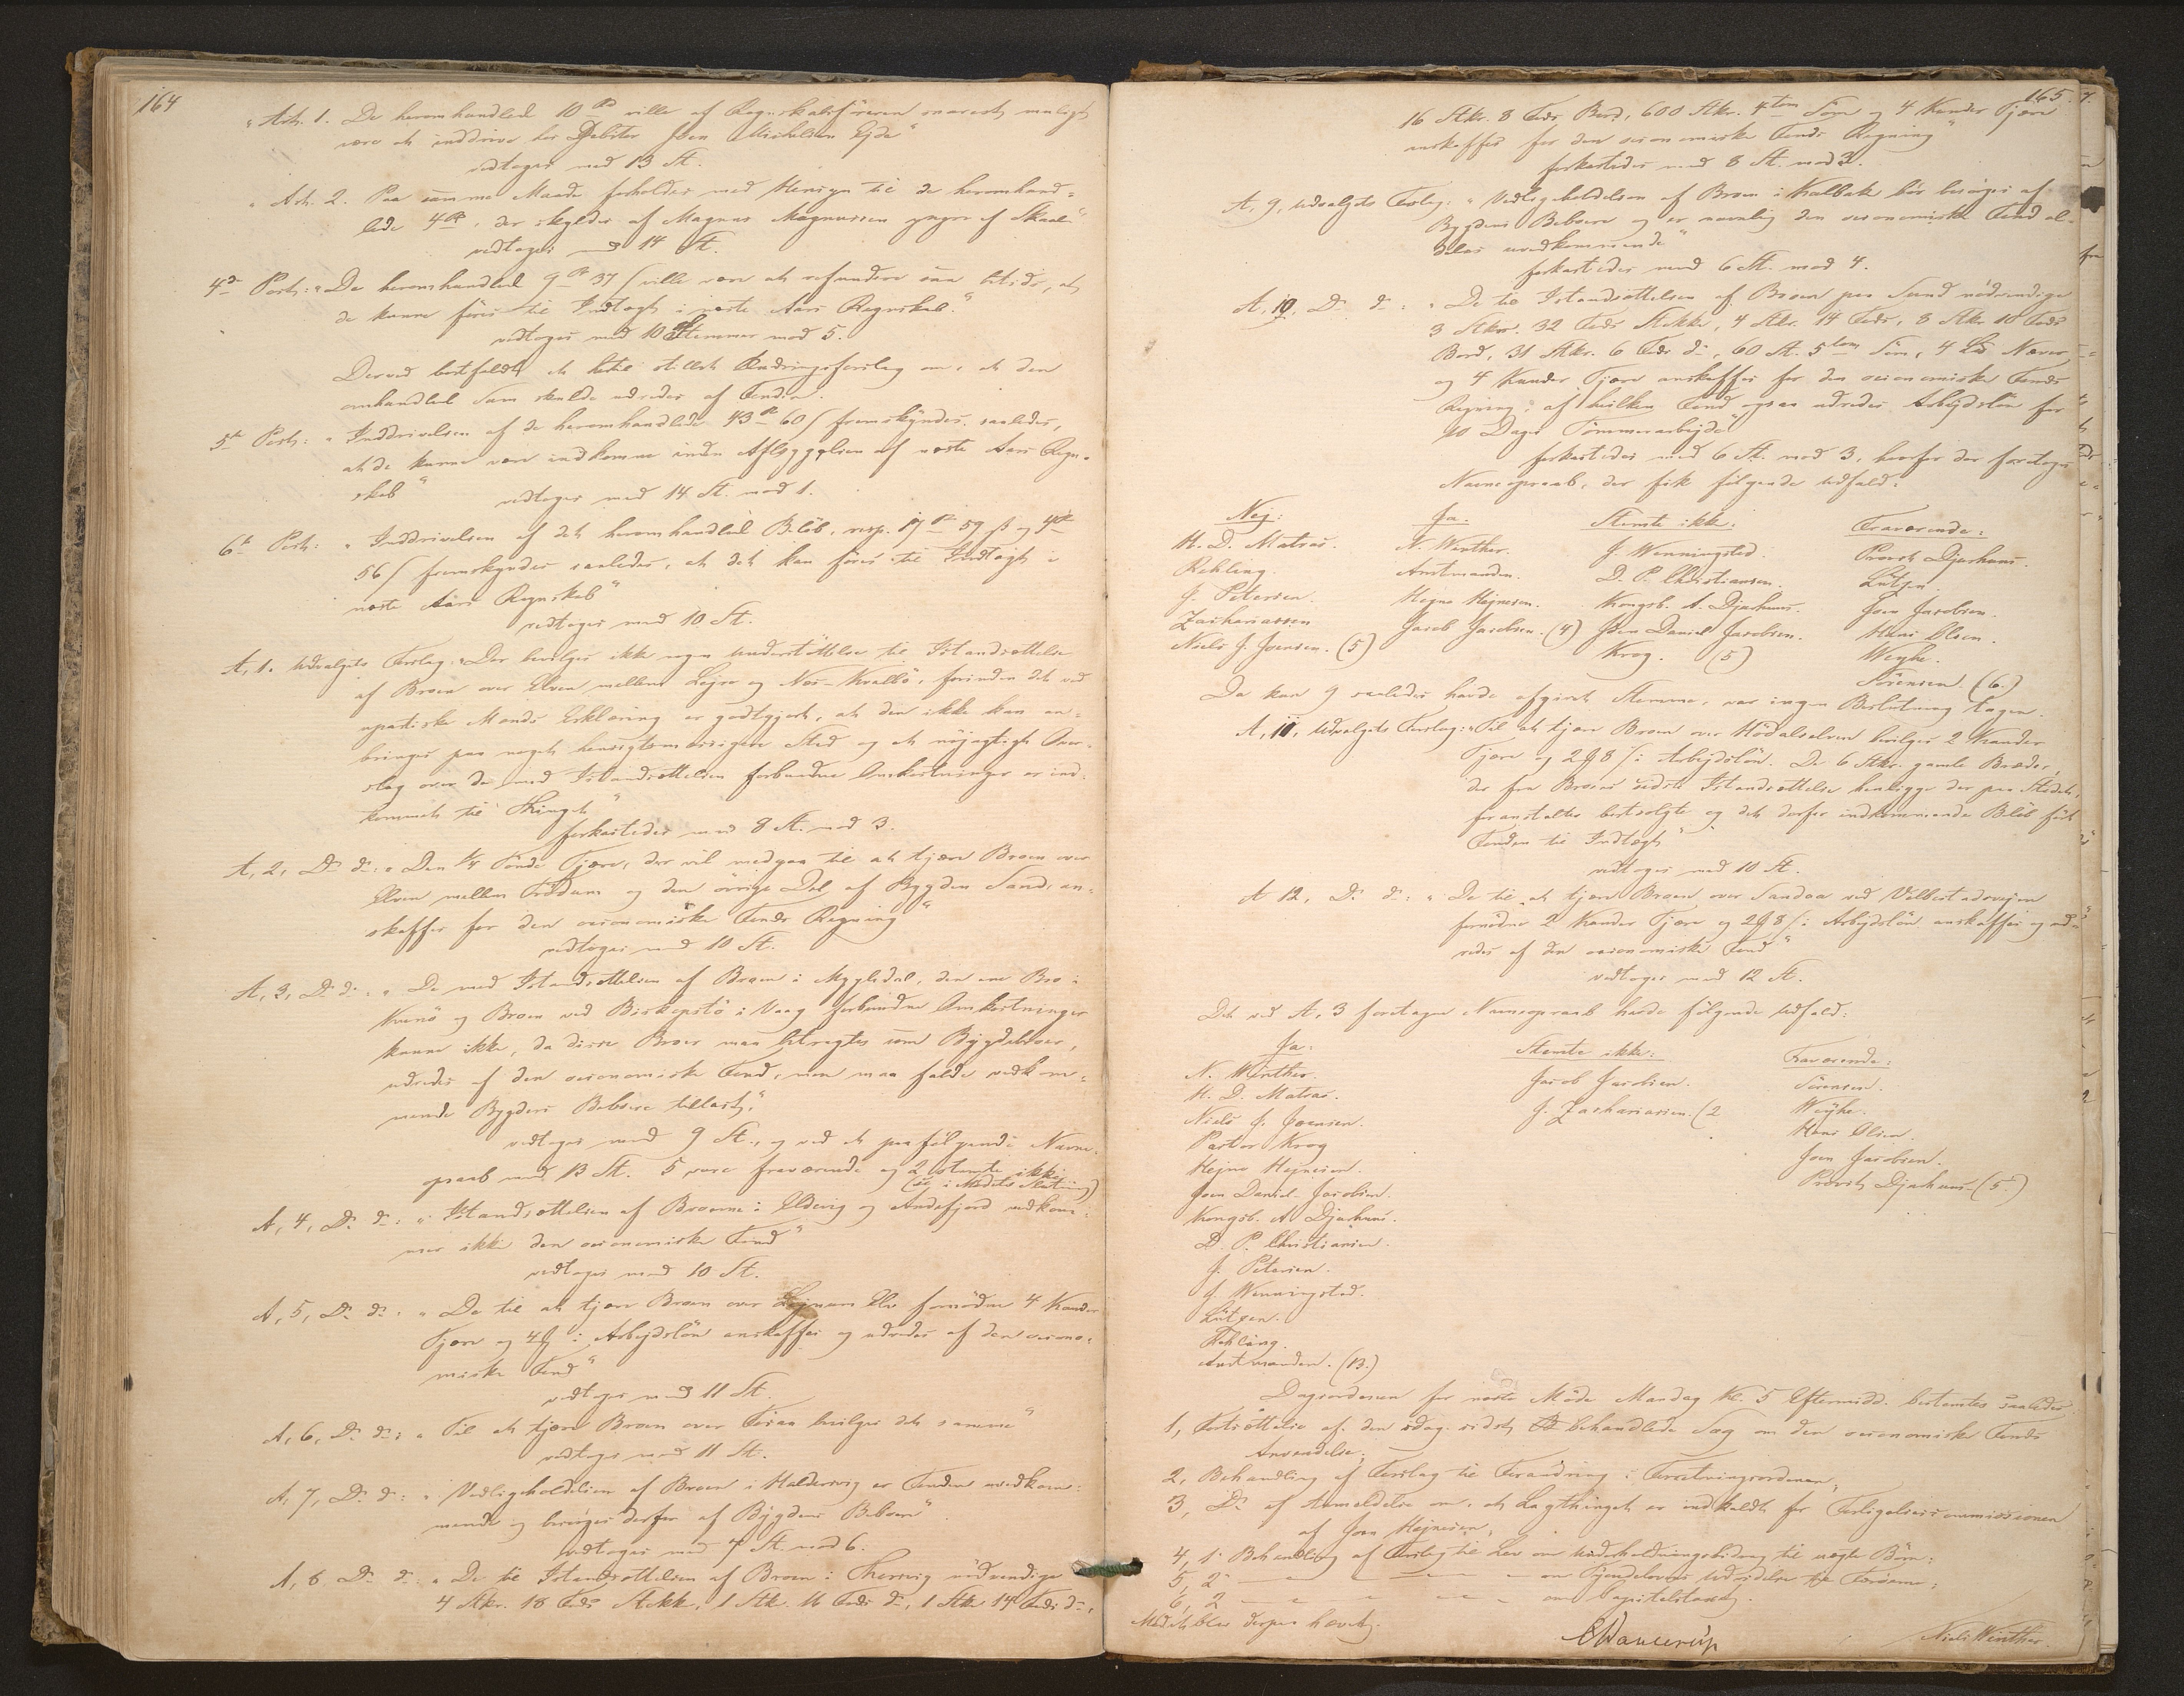 164
"Art. 1. De heromhandlede 10 Rd ville af Regnskabsføreren snarest muligt
være at inddrive hos Debitor Joen Michelsen Ejde"
vedtoges med 13 St.
"Art. 2. Paa samme Maade forholdes med Hensyn til de heromhand-
lede 4 Rd, der skyldes af Magnus Magnussen yngre af Skaale"
vedtoges med 14 St.
4de Post: "De heromhandlede 9 Rd 37 s ville være at refundere saa betids, at
de kunne føres til Indtægt i næste Aars Regnskab."
vedtoges med 10 Stemmer mod 5.
Derved bortfaldt et hertil stillet Ændringsforslag om, at den
omhandlede Sum skulde udredes af Fonden.
5te Post: "Inddrivelsen af de heromhandlede 43 Rd 60 s fremskyndes saaledes,
at de kunne være indkomne inden Aflæggelsen af næste Aars Regn-
skab" vedtoges med 14 St. mod 1.
6te Post: "Inddrivelsen af det heromhandlede Beløb, resp. 17 Rd 59 s og 4 Rd
56 s fremskyndes saaledes, at det kan føres til Indtægt i
næste Aars Regnskab"
vedtoges med 10 St.
A, 1. Udvalgets Forslag: "Der bevilges ikke nogen Understøttelse til Istandsættelse
af Broen over Elven mellem Lejre og Nes-Kvallø, forinden det ved
upartiske Mænds Erklæring er godtgjort, at den ikke kan an-
bringes paa noget hensigtsmæssigere Sted og et nøjagtigt Over-
slag over de med Istandsættelsen forbundne Omkostninger er ind-
kommet til Thinget"
forkastedes med 8 St. mod 3.
A, 2, Do do: "Den 1/4 Tønde Tjære, der vil medgaa til at tjære Broen over
Elven mellem Trødum og den øvrige Del af Bygden Sand, an-
skaffes for den oeconomiske Fonds Regning"
vedtoges med 10 St.
A, 3, Do do: "De med Istandsættelsen af Broen i Mygledal, den ene Bro i
Kunø og Broen ved Biskopstø i Vaag forbundne Omkostninger
kunne ikke, da disse Broer maa betragtes som Bygdebroer,
udredes af den oeconomiske Fond, men maa falde vedkom-
mende Bygders Beboere tillast,"
vedtoges med 9 St., og ved et paafølgende Navne-
opraab med 13 St. 5 vare fraværende og 2 stemte ikke
(see i Mødets Slutning)
A, 4, Do do: "Istandsættelsen af Broerne i Eldevig og Andefjord vedkom-
mer ikke den oeconomiske Fond"
vedtoges med 10 St.
A, 5, Do do: "De til at tjære Broen over Lejnum Elv fornødne 4 Kander
Tjære og 4 ß i Arbejdsløn anskaffes og udredes af den oecono-
miske Fond"
vedtoges med 11 St.
A, 6, Do do: "Til at tjære Broen over Fosaa bevilges det samme"
vedtoges med 11 St.
A, 7, Do do: "Vedligeholdelsen af Broen i Haldersvig er Fonden uvedkom-
mende og besørges derfor af Bygdens Beboere"
vedtoges med 7 St. mod 6.
A, 8 Do do: "De til Istandsættelsen af Broen i Thorsvig nødvendige
4 Stkr. 18 Fods Stokke, 1 Stk. 16 Fods do, 1 Stk. 14 Fods do,
165.
16 Stkr. 8 Fods Bord, 600 Stkr. 4 tom Søm og 4 Kander Tjære
anskaffes for den oeconomiske Fonds Regning"
forkastedes med 8 St. mod 3.
A, 9, Udvalgets Forslag: "Vedligeholdelsen af Broen i Kvalbak bør besørges af
Bygdens Beboere og er navnlig den oeconomiske Fond al-
deles uvedkommende"
forkastedes med 6 St. mod 4.
A, 10, Do do: "De til Istandsættelsen af Broen paa Sund nødvendige
3 Stkr. 32 Fods Stokke, 4 Stkr. 14 Fods, 8 Stkr 10 Fods
Bord, 31 Stkr. 6 Fods do, 60 St. 5 tom Søm, 4 Lod Næver
og 4 Kander Tjære anskaffes for den oeconomiske Fonds
Regning, af hvilken Fond ogsaa udredes Arbejdsløn for
10 Dages Tømmerarbejde"
forkastedes med 6 St. mod 3, hvorfor der foretoges
Navneopraab, der fik følgende Udfald:
Nej: Ja: Stemte ikke: Fraværende:
H. D. Matras. N. Winther. J. Wenningsted. Provst Djurhuus.
Rehling. Amtmanden. D. P. Christiansen. Lützen.
J. Petersen. Hejne Hejnesen. Kongsb. A. Djurhuus. Joen Jacobsen.
Zachariassen Jacob Jacobsen. (4) Joen Daniel Jacobsen. Hans Olsen.
Niels J. Joensen. (5) Krog. (5) Weyhe.
Sørensen. (6.)
Da kun 9 saaledes havde afgivet Stemme, var ingen Beslutning tagen.
A, 11, Udvalgets Forslag: "Til at tjære Broen over Hödalselven bevilges 2 Kander
Tjære og 2 ß 8 s i Arbejdsløn. De 6 Stkr. gamle Bræder,
der fra Broens sidste Istandsættelse henligge der paa Stedet,
foranstaltes bortsolgte og det derfor indkommende Beløb ført
Fonden til Indtægt"
vedtoges med 10 St.
A 12, Do do: "De til at tjære Broen over Sandaa ved Velbestadvejen
fornødne 2 Kander Tjære og 2 ß 8 s i Arbejdsløn anskaffes og ud-
redes af den oeconomiske Fond"
vedtoges med 12 St.
Det ved A, 3 foretagne Navneopraab havde følgende Udfald:
Ja: Stemte ikke: Fraværende:
N. Winther. Jacob Jacobsen. Sörensen.
H. D. Matras. J. Zachariasen. (2 Weyhe.
Niels J. Joensen. Hans Olsen.
Pastor Krog Joen Jacobsen.
Hejne Hejnesen. Provst Djurhuus. (5.)
Joen Daniel Jacobsen.
Kongsb. A Djurhuus.
D. P. Christiansen.
J. Petersen.
J. Wenningsted.
Lützen.
Rehling.
Amtmanden. (13.)
Dagsordenen for næste Møde Mandag Kl. 5 Eftermidd. bestemtes saaledes
1, Fortsættelse af den idag sidst behandlede Sag om den oeconomiske Fonds
Anvendelse;
2, Behandling af Forslag til Forandring i Forretningsordenen,
3, Do af Anmeldelse om, at Lagthinget er indkaldt for Forligelsescommissionen
af Joen Hejnesen,
4, 1. Behandling af Forslag til Lov om Underholdningsbidrag til uægte Børn;
5, 2 — — — — — om Tyendelovens Udvidelse til Færøerne;
6, 2 — — — — — om Capitelstaxt.
Mødet blev derpaa hævet.
CDahlerup Niels Winther.